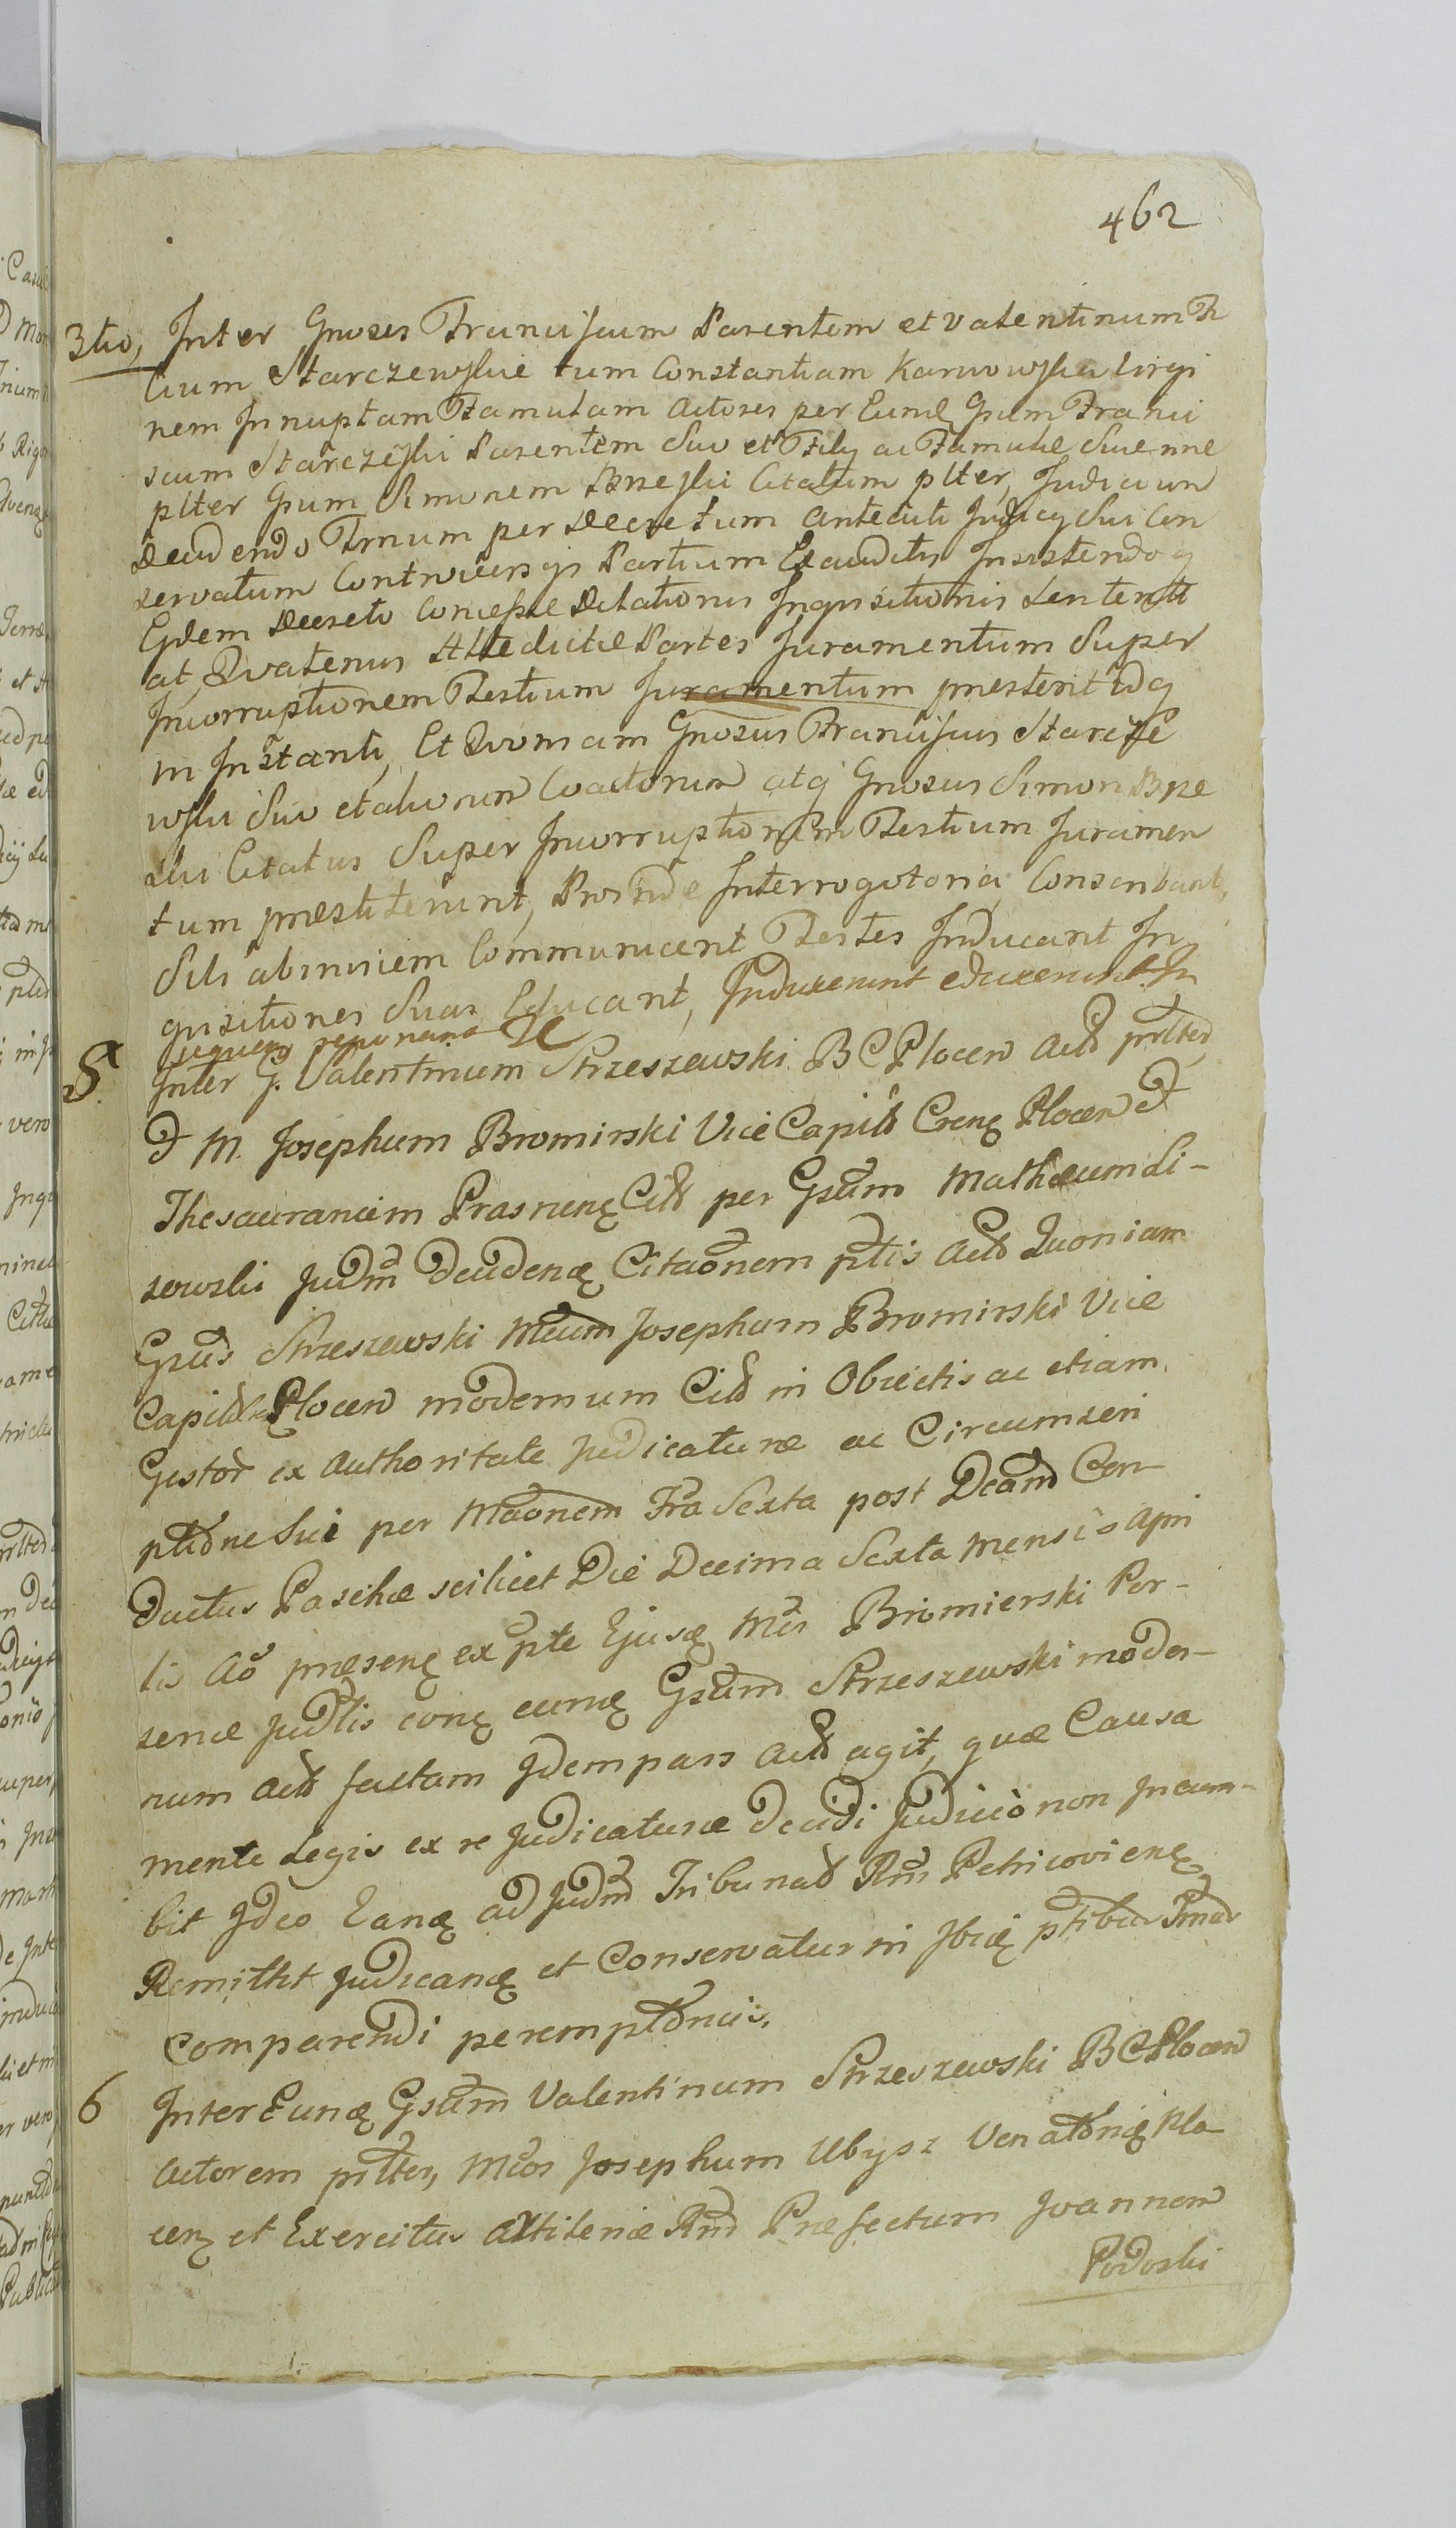 462
3tio, Inter Gnosos Franciscum Parentem et Valentinum Fi
lium Starczewskie tum Constantiam Karwowska Virgi
nem Innuptam Famulam Actores per Eund Gsum Franci
scum Starczeski Parentem Suo et Filij ac Famulæ Suæ nne
plter Gsum Simonem Brzeski Citatum plter, Judicium
Decidendo Trnum per Decretum Antecuti Judicij Sui Con
servatum Controversijs Partium Exauditis Insistendo q
Eidem Decreto Concessæ Dilationis Inquisitionis Sententi
at, Quatenus Attedictæ Partes Juramentum Super
Incorruptionem Testium Juramentum præsterit idq
in Instanti, Et Quoniam Gnosus Franciscus Starcze
wski Suo et aliorum Coactorum atq Gnosus Simon Brze
ski Citatus Super Incorruptionem Testium Juramen
tum præstiterunt, Proinde Interrogatoria Conscribant,
Sibi abinvicem Communicent Testes Inducant In
quisitiones Suas Educant, Induxerunt eduxerunt In
sequen reponant &c
5. Inter G. Valentinum Strzeszewski B C Plocen Actt prlted
& M. Josephum Bromirski Vice Capitt Crens Plocen &
Thesaurarium Prasnens Citt per Gsum Mathæum Li-
sowski Judm Decidend Citaonem ptis Actt Quoniam
Gsus Strzeszewski Mcum Josephum Bromirski Vice
Capitt Plocen modernum Citt in Obiectis ac etiam
Gestor ex Authoritate Judicaturæ ac Circumscri
ptione Sui per Maonem Fra Sexta post Dcam Con-
ductus Paschæ scilicet Die Decima Sexta Mensis Apri
lis Ao præsens ex pte Ejusd Mci Bromierski Per-
senæ Judlis cont eund Gsum Strzeszewski moder-
num Actt factam Idem pars Actt agit, quæ Causa
mente Legis ex re Judicaturæ decidi Judicio non Incum-
bit Ideo Eand ad Judm Tribunalt Rni Petricoviens
Remittit Judicand et Conservatur in Ibid ptibus Trnus
Comparendi peremptorius.
6 Inter Eund Gsum Valentinum Strzeszewski B C Plocen
Actorem prltter, Mcos Josephum Ubysz Venatorid Plo
cens et Exercitus Artileriæ Rni Præfectum Joannem
Podoski